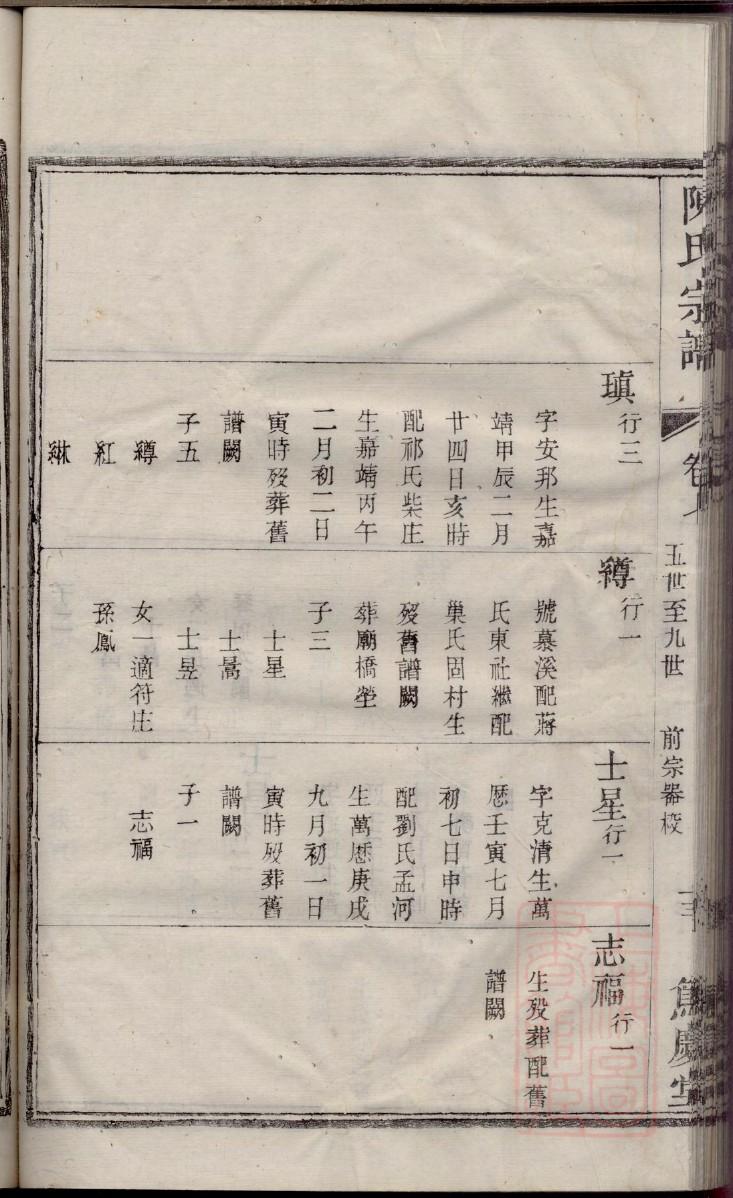 陳氏宗譜
五世至九世
前宗器校
瑱行三
字安邦生嘉
靖甲辰二月
廿四日亥時
配祁氏柴庄
生嘉靖丙午
二月初二日
寅時殁葬舊
譜闕
子五
縛
紅
綝
縛行一
號慕溪配蔣
氏東社繼配
巢氏固村生
殁舊譜闕
葬廟橋塋
子三
士星
士暠
士昱
女一適符庄
孫鳳
士星行一
字克清生萬
厯壬寅七月
初七日申時
配劉氏孟河
生萬厯庚戌
九月初一日
寅時殁葬舊
譜闕
子一
志福
志福行一
生殁葬配舊
譜闕